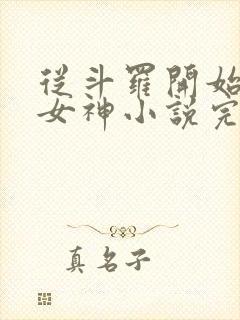 從斗羅開始
女神小說完
真名子